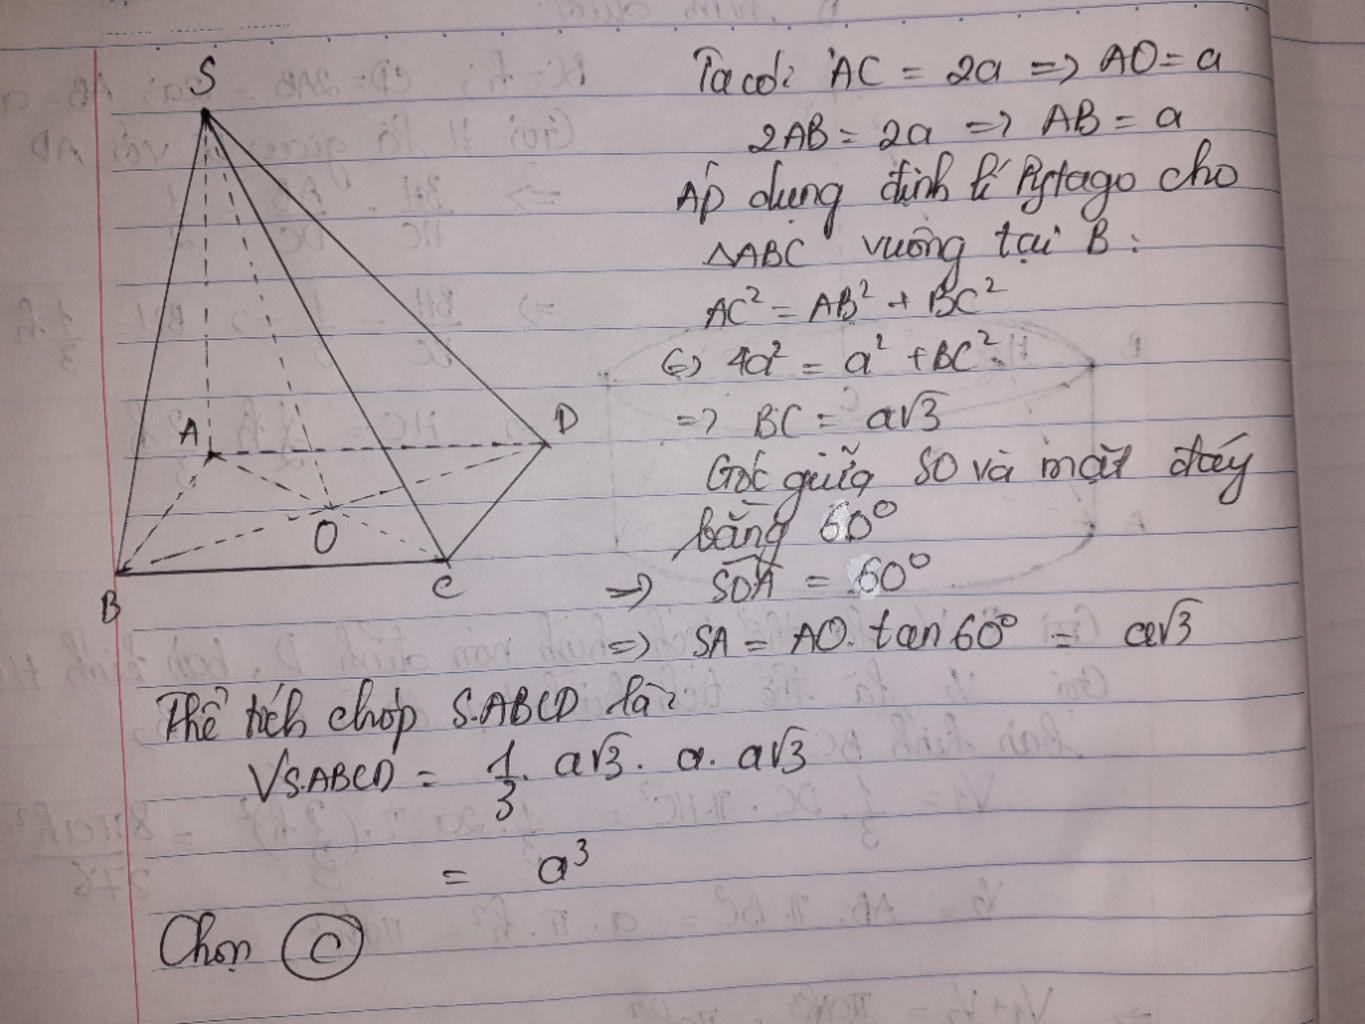 S
A
D
O
B
C
Ta có: AC = 2a => AO = a
2AB = 2a => AB = a
Áp dụng định lí Pytago cho
△ABC vuông tại B:
AC² = AB² + BC²
(=) 4a² = a² + BC²
=> BC = a√3
Góc giữa SO và mặt đáy
bằng 60°
=> SOA = 60°
=> SA = AO. tan60° = a√3
Thể tích chóp S.ABCD là:
VS.ABCD = 1/3 . a√3 . a . a√3
= a³
Chọn C